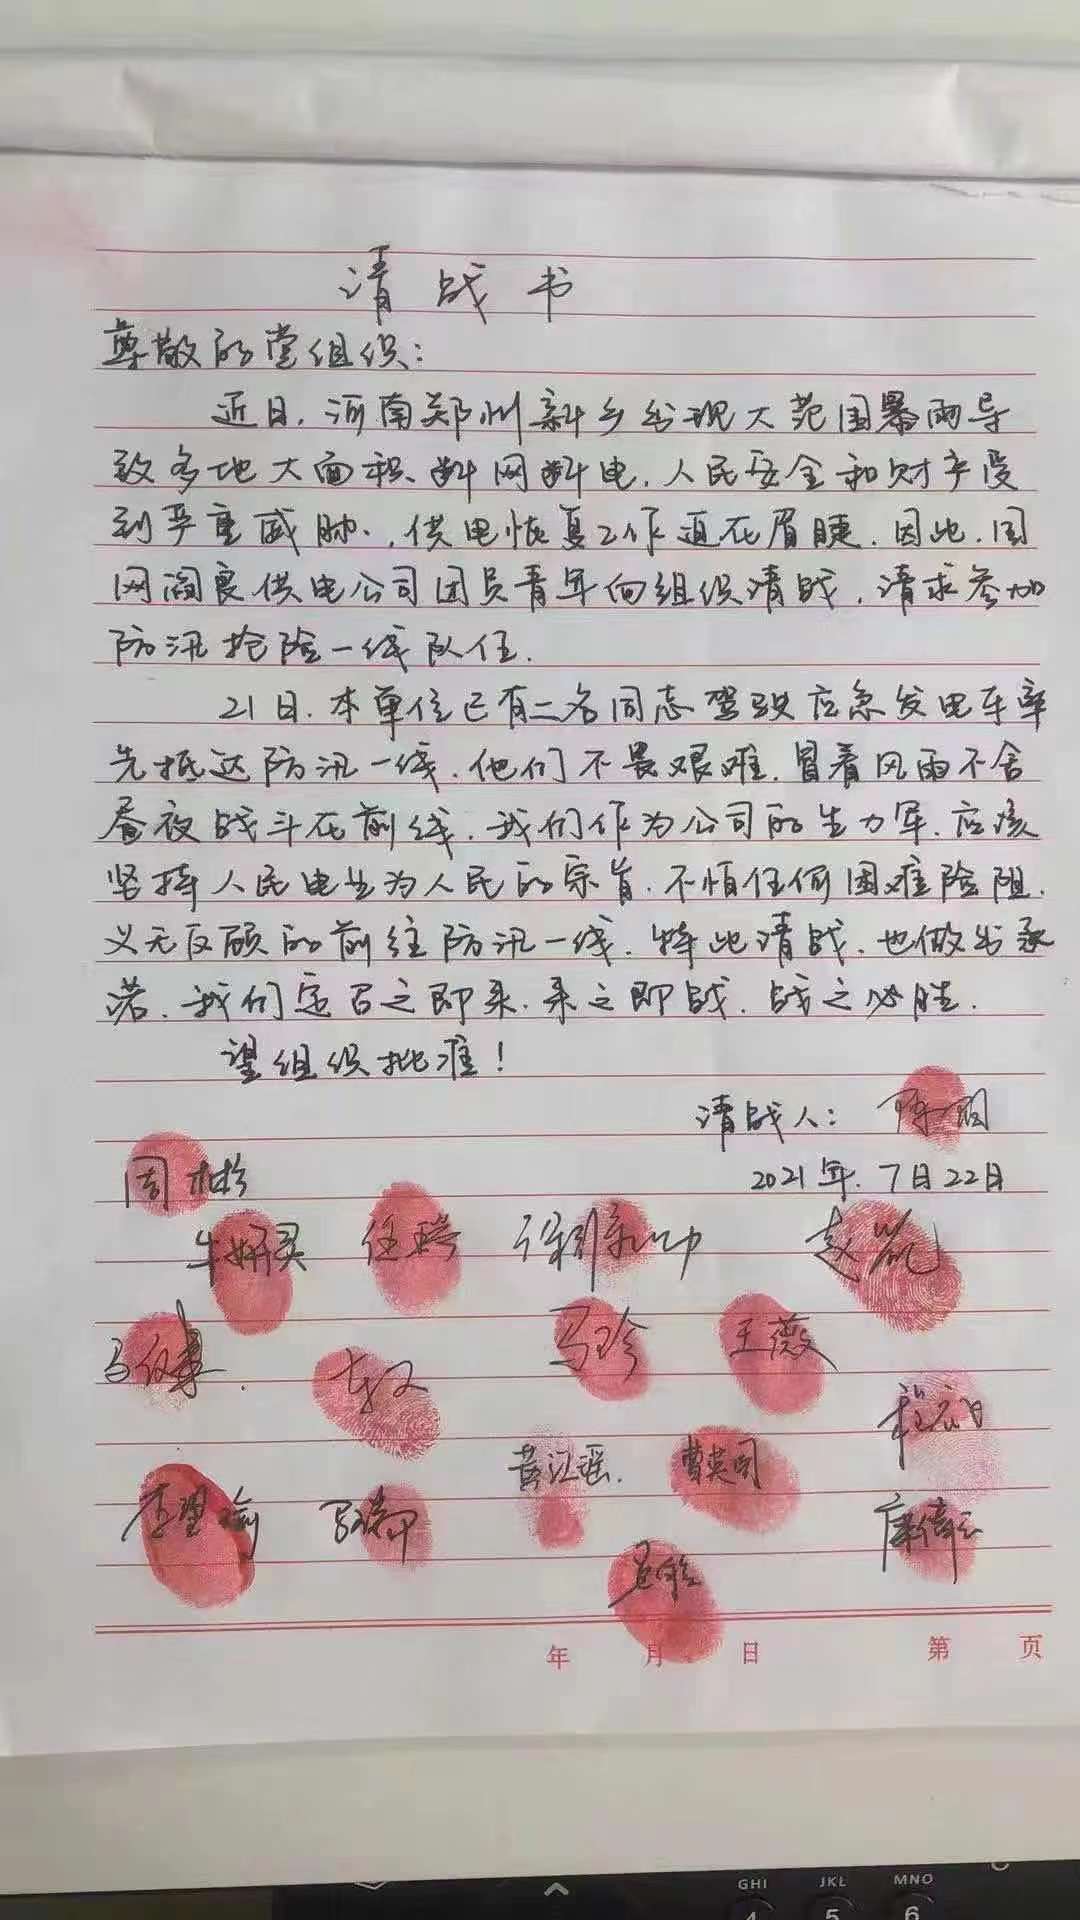 请战书
尊敬的党组织：
近日，河南郑州新乡出现大范围暴雨导
致多地大面积断网断电，人民安全和财产受
到严重威胁，供电恢复工作迫在眉睫，因此，国
网阎良供电公司团员青年向组织请战，请求参加
防汛抢险一线队伍.
21日，本单位已有二名同志驾驶应急发电车率
先抵达防汛一线，他们不畏艰难，冒着风雨不舍
昼夜战斗在前线，我们作为公司的生力军，应该
坚持人民电业为人民的宗旨，不怕任何困难险阻，
义无反顾的前往防汛一线，特此请战，也做出承
诺，我们定召之即来，来之即战，战之必胜.
望组织批准！
请战人：
2021年.7月22日
周彬
牛妍灵 任 赵凯
马 马珍 王薇
黄江瑶. 曹英
李
年 月 日 第 页
GHI JKL MNO
4 5 6